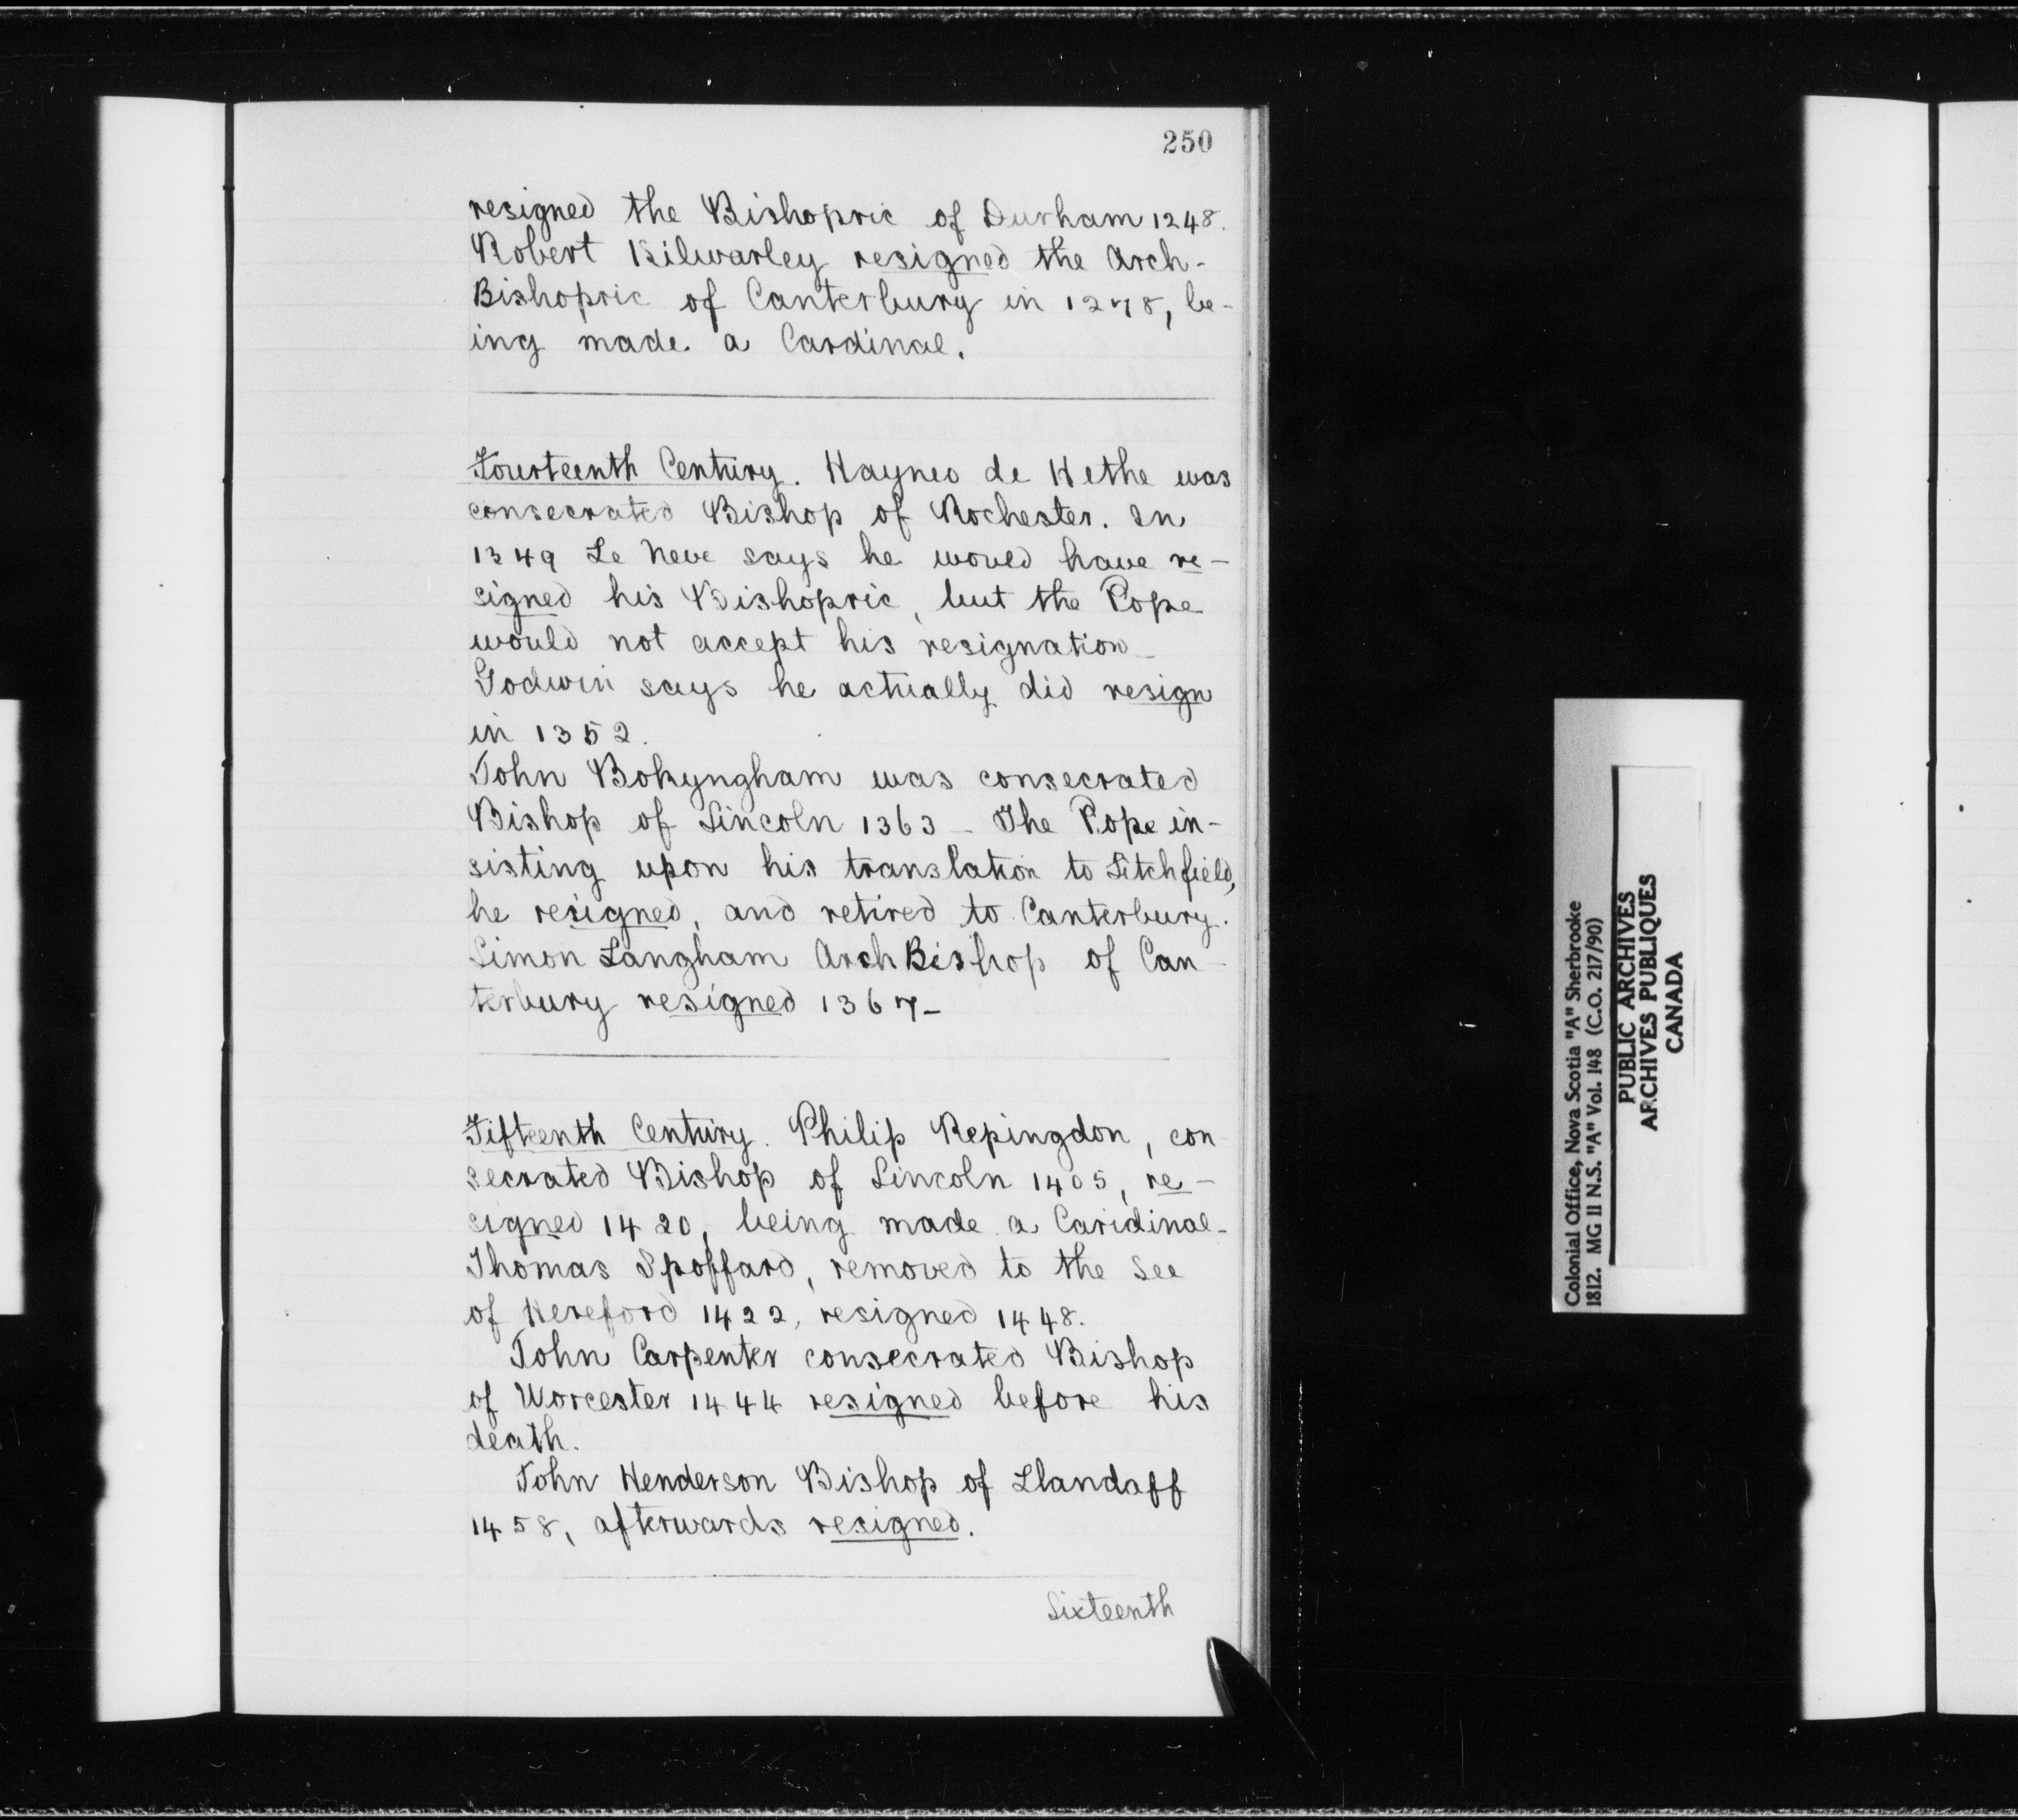 250
resigned the Bishopric of Durham 1248.
Robert Kilwarley resigned the Arch-
Bishopric of Canterbury in 1278, be-
ing made a Cardinal.
Fourteenth Century. Haymo de Hethe was
consecrated Bishop of Rochester. In
1349 Le Neve says he would have re-
signed his Bishopric, but the Pope
would not accept his resignation_
Godwin says he actually did resign
in 1352.
John Bokyngham was consecrated
Bishop of Lincoln 1363 _ The Pope in-
sisting upon his translation to Litchfield,
he resigned, and retired to Canterbury.
Simon Langham ArchBishop of Can-
terbury resigned 1367_
Fifteenth Century. Philip Repingdon, con
secrated Bishop of Lincoln 1405, re-
signed 1420, being made a Caridinal_
Thomas Spoffard, removed to the See
of Hereford 1422, resigned 1448.
John Carpenter consecrated Bishop
of Worcester 1444 resigned before his
death.
John Henderson Bishop of Llandaff
1458, afterwards resigned.
Sixteenth
Colonial Office, Nova Scotia "A" Sherbrooke
1812. MG 11 N.S. "A" Vol. 148 (C.O. 217/90)
PUBLIC ARCHIVES
ARCHIVES PUBLIQUES
CANADA